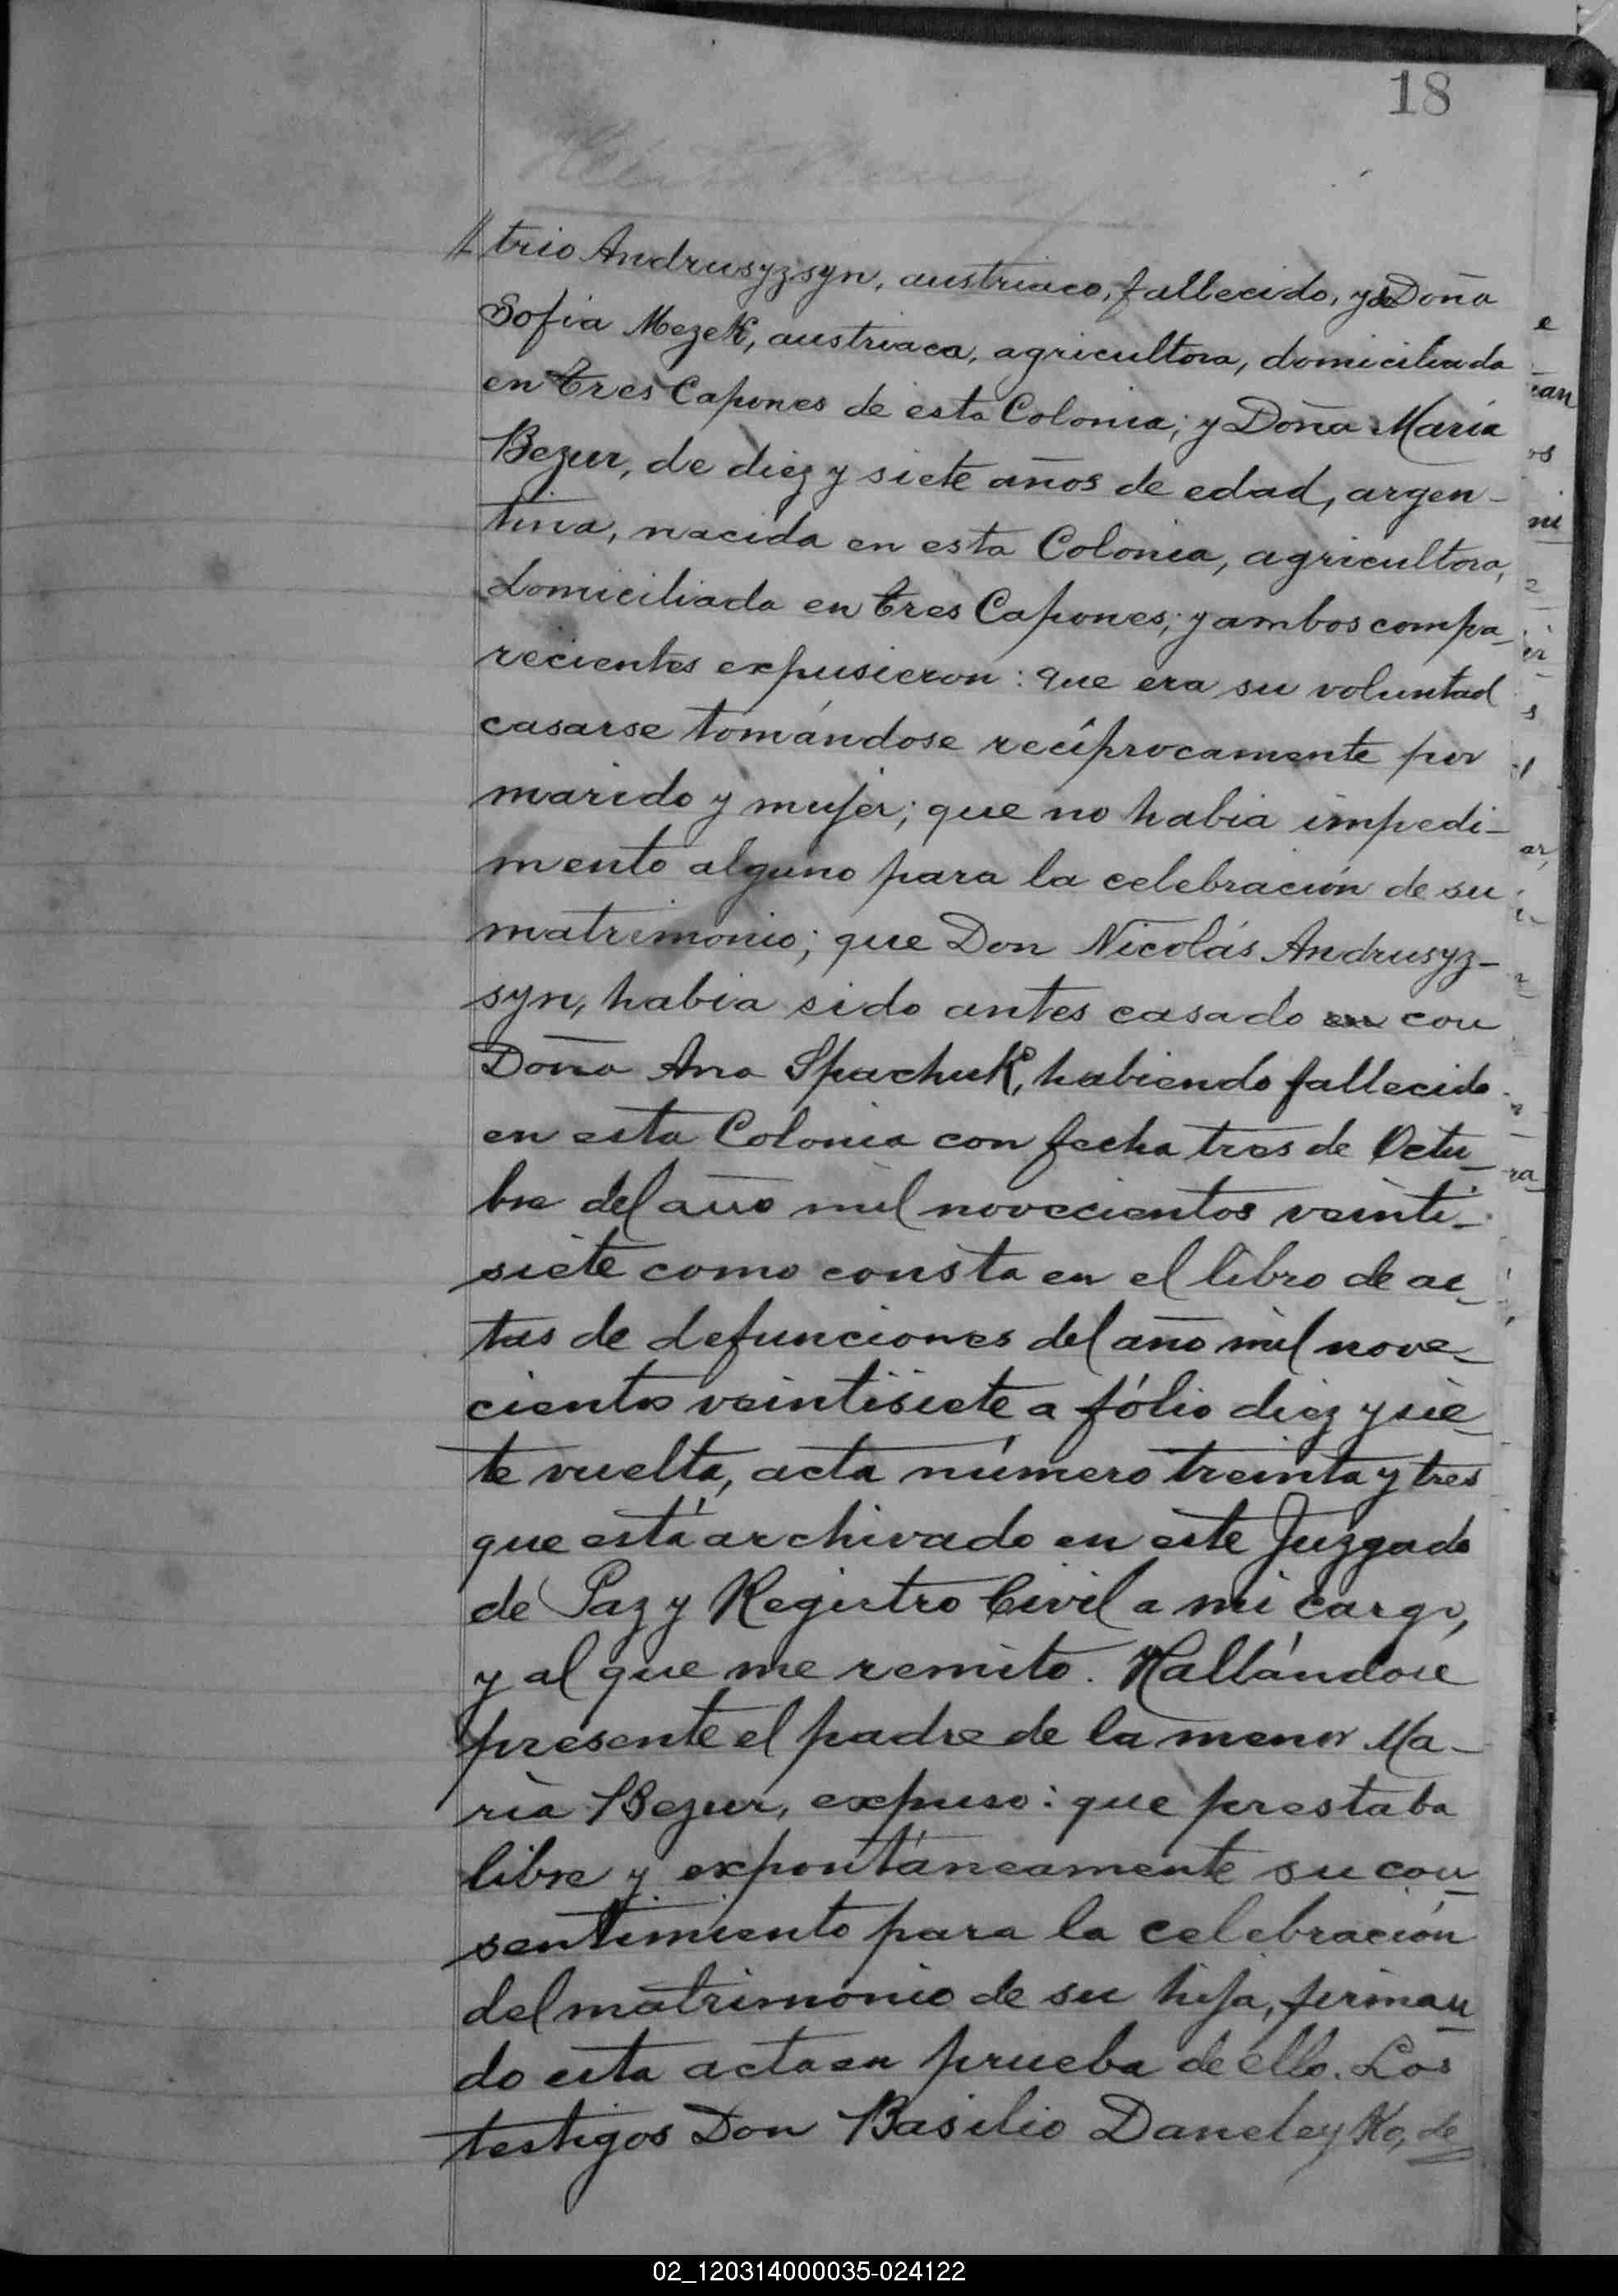 18
// trio Andrusyzsyn, austriaco, fallecido, y de Doña
Sofia Mezek, austriaca, agricultora, domiciliada
en Tres Capones de esta Colonia; y Doña María
Bezur, de diez y siete años de edad, argen-
tina, nacida en esta Colonia, agricultora,
domiciliada en Tres Capones; y ambos compa-
recientes expusieron: que era su voluntad
casarse tomándose recíprocamente por
marido y mujer; que no habia impedi-
mento alguno para la celebración de su
matrimonio; que Don Nicolás Andrusyz-
syn, habia sido antes casado en con
Doña Ana Spachuk, habiendo fallecido
en esta Colonia con fecha tres de Octu-
bre del año mil novecientos veinti-
siete como consta en el libro de ac-
tas de defunciones del año mil nove-
cientos veintisiete a fólio diez y sie-
te vuelta, acta número treinta y tres
que está archivado en este Juzgado
de Paz y Registro Civil a mi cargo,
y al que me remito. Hallándose
presente el padre de la menor Ma-
ría Bezur, expuso: que prestaba
libre y expontáneamente su con-
sentimiento para la celebración
del matrimonio de su hija, firman-
do esta acta en prueba de ello. Los
testigos Don Basilio Daneleyko, de
02_120314000035-024122